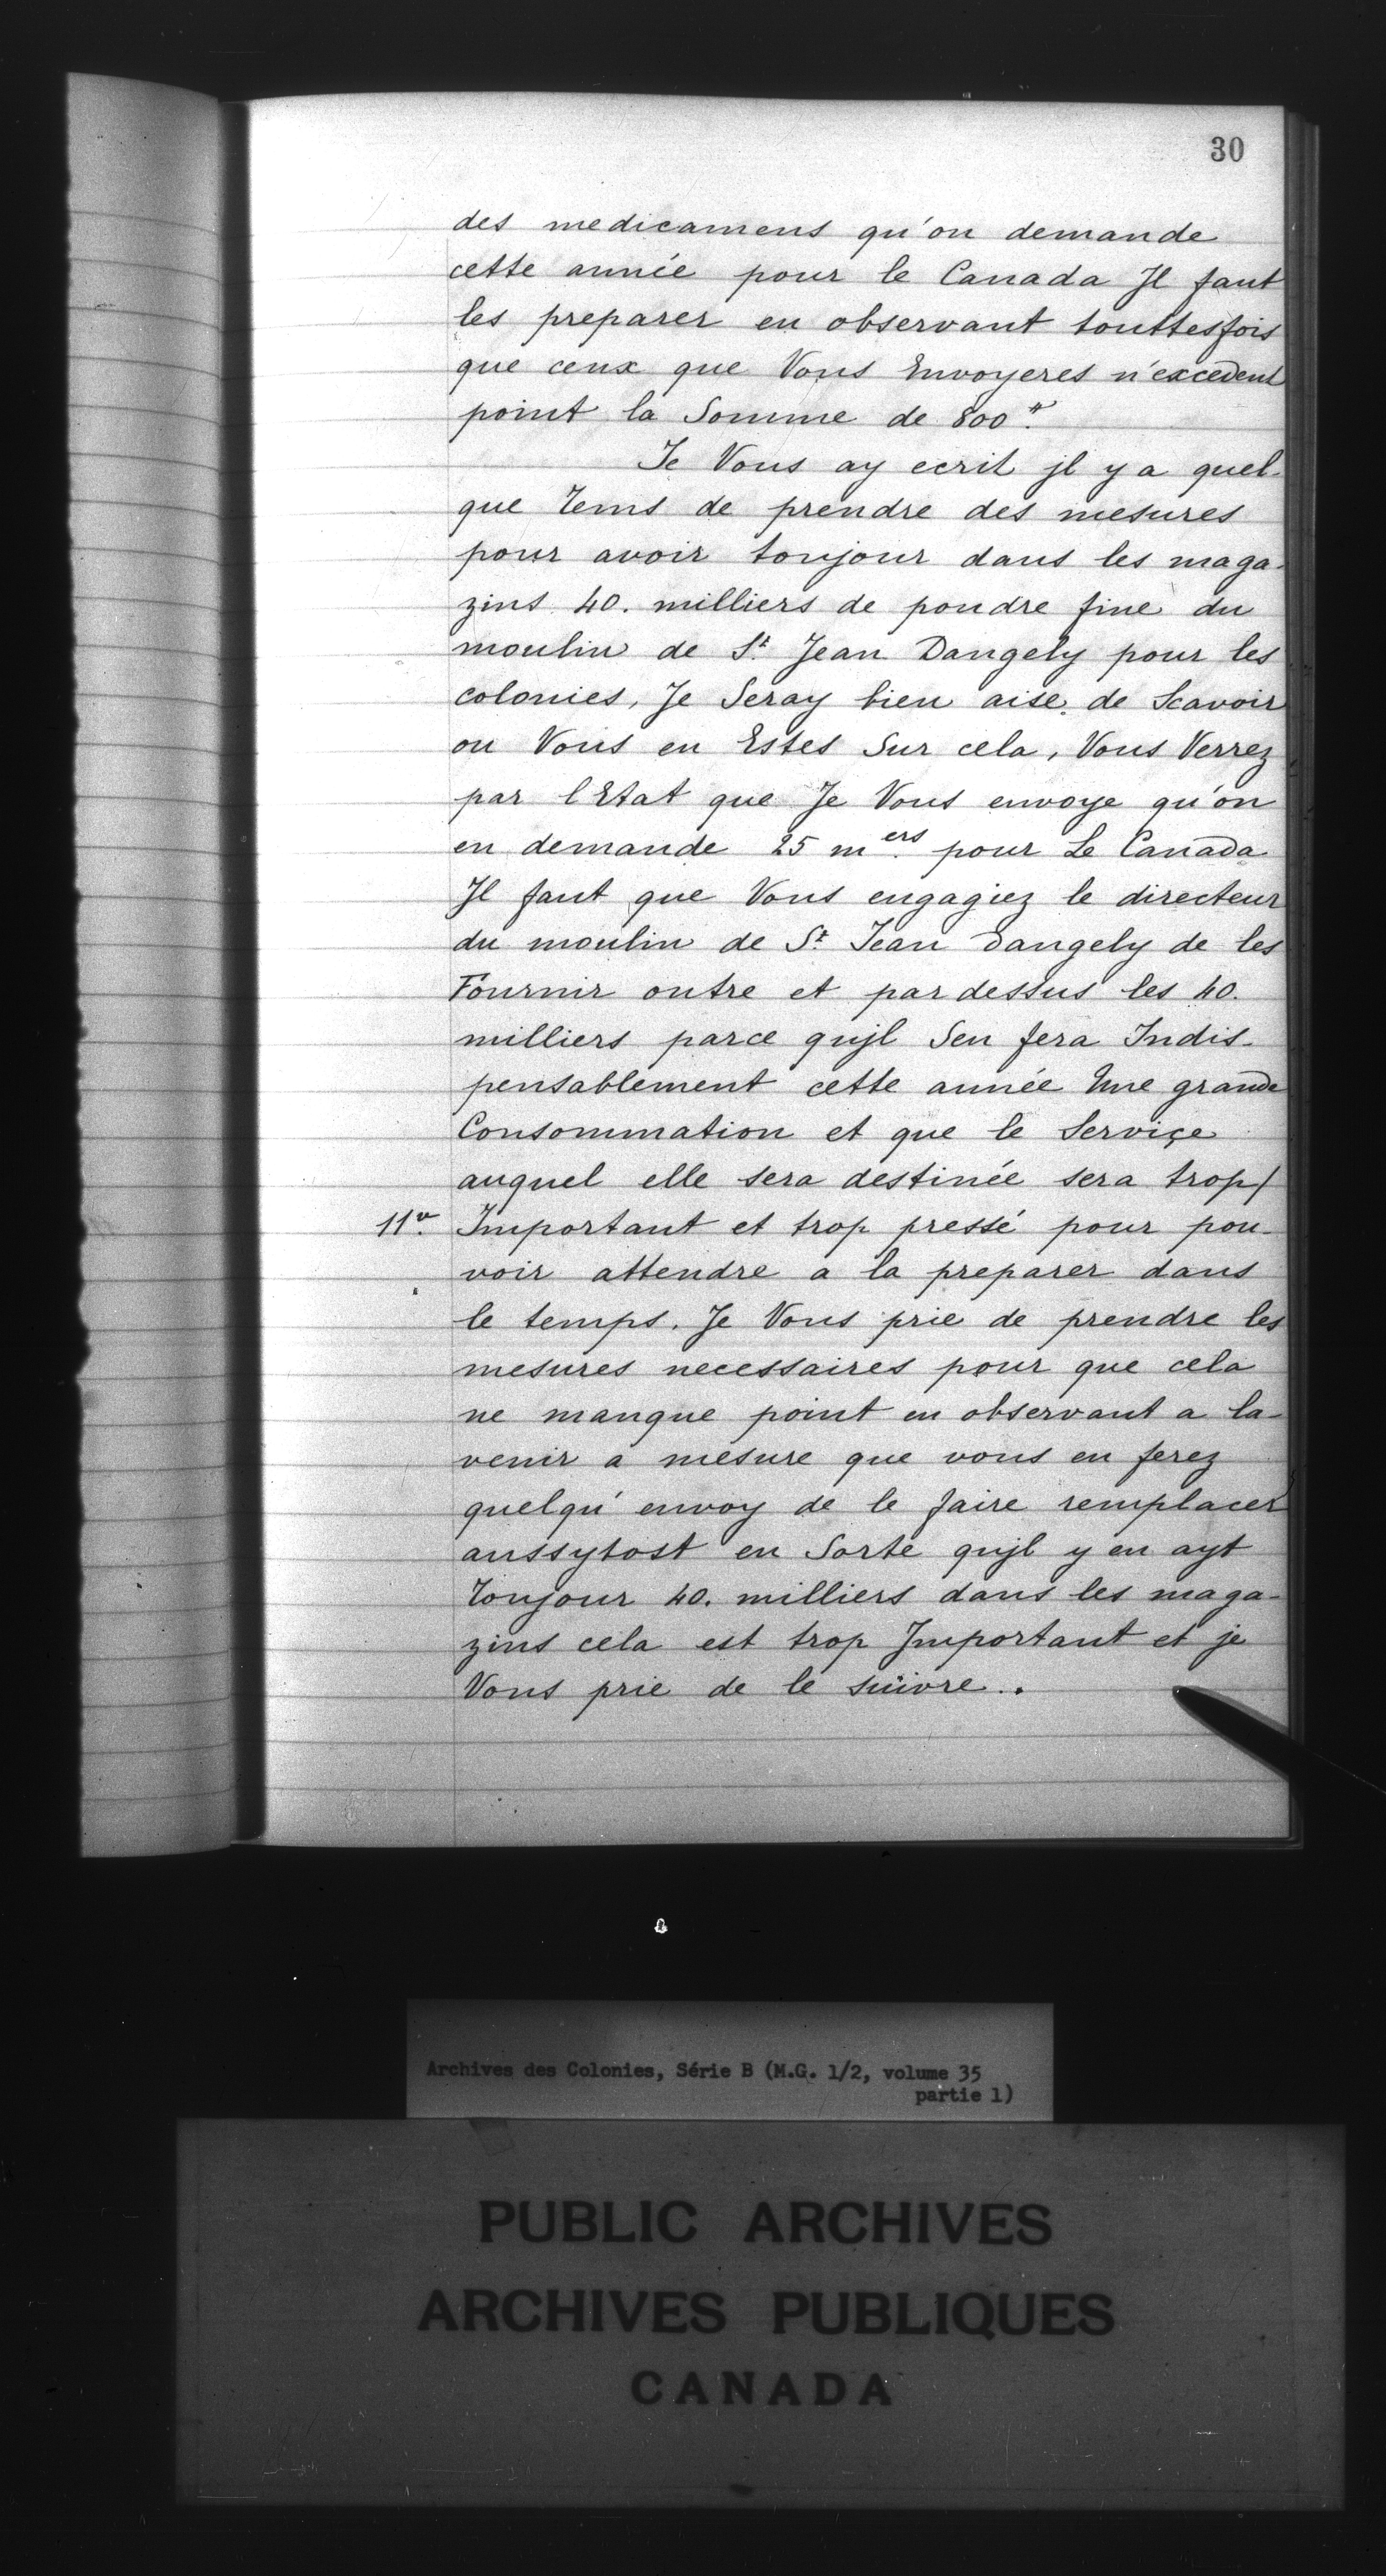 30
des medicamens qu'on demande
cette année pour le Canada Il faut
les preparer en observant touttesfois
que ceux que Vous Envoyeres n'excedent
point la Somme de 800 ₶.
Je Vous ay ecrit jl y a quel-
que Tems de prendre des mesures
pour avoir toujour dans les maga-
zins 40. milliers de poudre fine du
moulin de St. Jean Dangely pour les
colonies, Je Seray bien aise de Scavoir
ou Vous en Estes Sur cela, Vous Verrez
par l Etat que Je Vous envoye qu'on
en demande 25 m ers. pour Le Canada
Il faut que Vous engagiez le directeur
du moulin de St. Jean Dangely de les
Fournir outre et par dessus les 40.
milliers parce qujl Sen fera Indis-
pensablement cette année Une grande
Consommation et que le Serviçe
auquel elle sera destinée sera trop/
11 v. Important et trop pressé pour pou-
voir attendre a la preparer dans
le temps. Je Vous prie de prendre les
mesures necessaires pour que cela
ne manque point en observant a la-
venir a mesure que vous en ferez
quelqu' envoy de le faire remplacer
aussytost en Sorte qujl y en ayt
Toujour 40. milliers dans les maga-
zins cela est trop Important et je
Vous prie de le suivre..
Archives des Colonies, Série B (M.G. 1/2, volume 35
partie 1)
PUBLIC ARCHIVES
ARCHIVES PUBLIQUES
CANADA